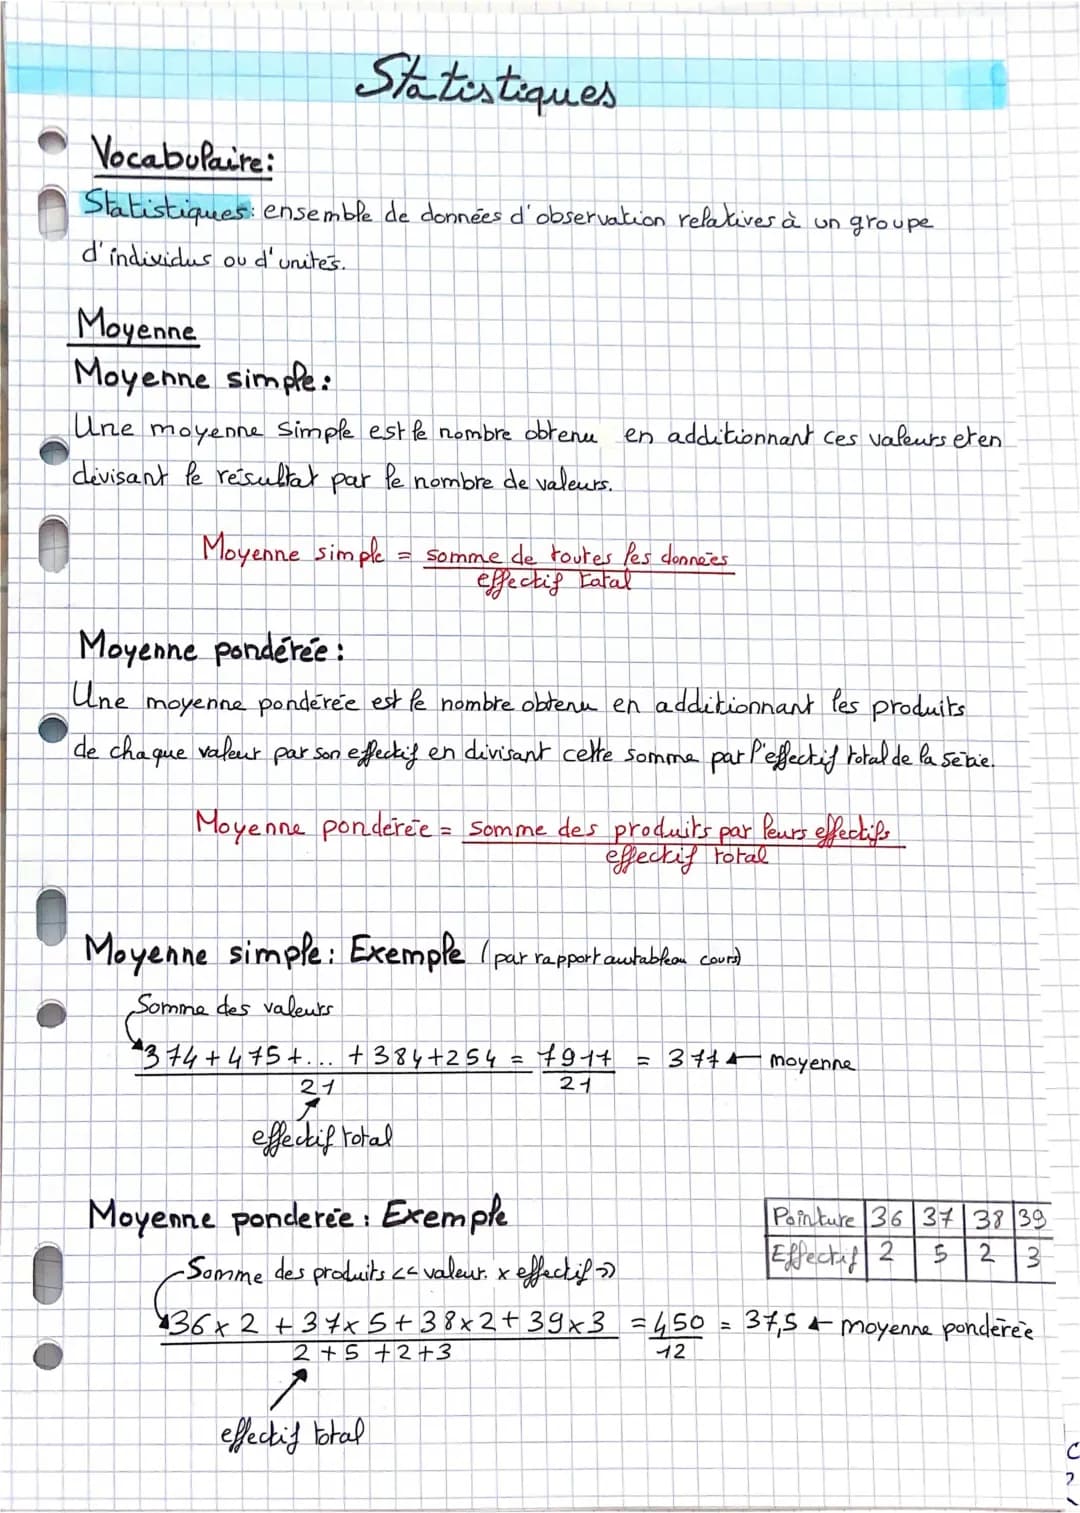 Statistiques
Vocabulaire:
Statistiques: ensemble de données d'observation relatives à un groupe
d'individus ou d'unités.
Moyenne
Moyenne simple:
Une moyenne simple est le nombre obtenu en additionnant ces valeurs et en
divisant le résultat par le nombre de valeurs.
Moyenne simple = somme de toutes les données
effectif total
Moyenne pondérée:
Une moyenne pondérée est le nombre obtenu en additionnant les produits
de chaque valeur par son effectif en divisant cette somme par l'effectif total de la série.
Moyenne pondérée = somme des produits par leurs effectifs
effectif total
Moyenne simple: Exemple (par rapport au tableau cours)
Somme des valeurs
374+475+... +384+254 = 7917 = 377 ← moyenne
21 21
effectif total
Moyenne ponderée: Exemple
Pointure 36 37 38 39
Effectif 2 5 2 3
Somme des produits << valeur. x effectif >>
36x2 +37x5+38x2+39x3 = 450 = 37,5 ← moyenne pondérée
2+5+2+3 12
effectif total